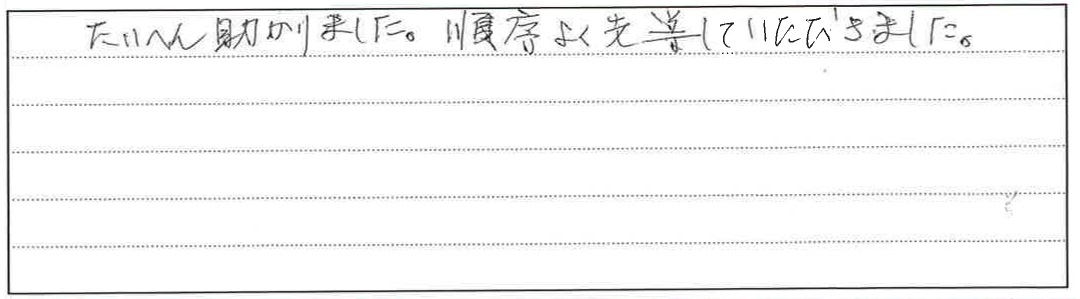 たいへん助かりました。順序よく先導していただきました。